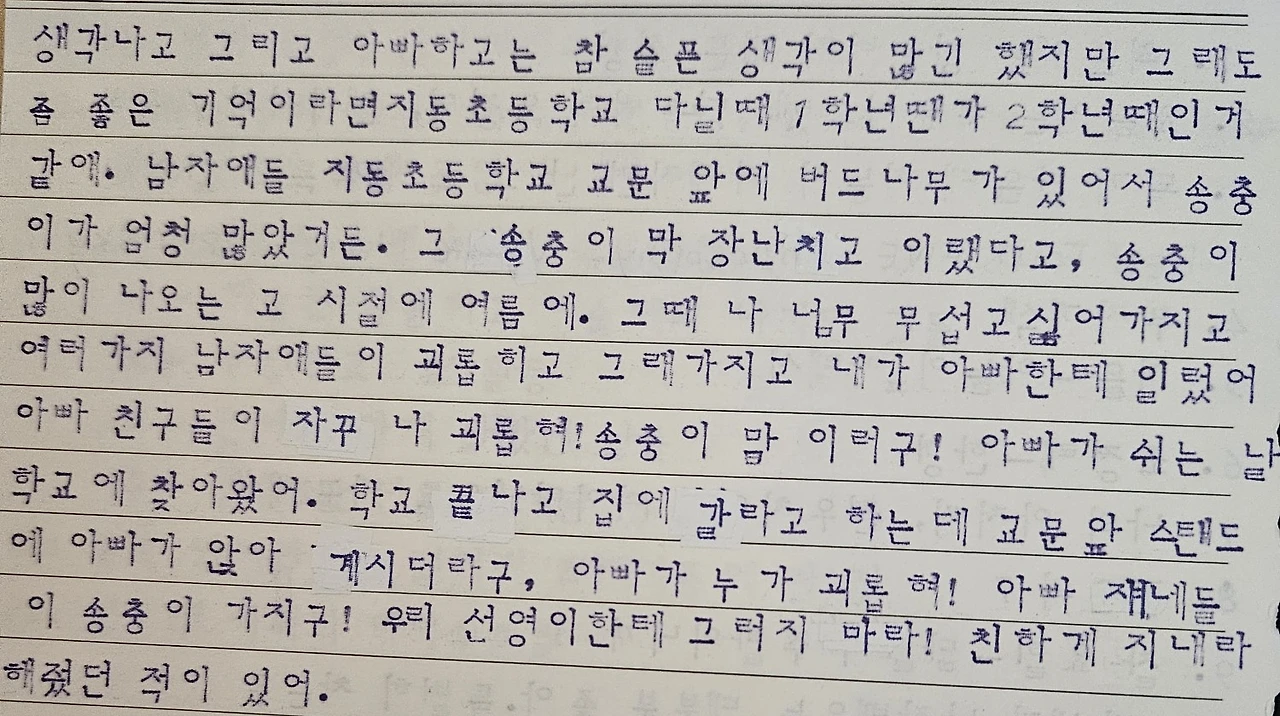 생각나고 그리고 아빠하고는 참 슬픈 생각이 많긴 했지만 그래도
좀 좋은 기억이라면지동초등학교 다닐때 1학년땐가 2학년때인거
같애. 남자애들 지동초등학교 교문 앞에 버드나무가 있어서 송충
이가 엄청 많았거든. 그 송충이 막 장난치고 이랬다고, 송충이
많이 나오는 고 시절에 여름에. 그때 나 너무 무섭고싫어가지고
여러가지 남자애들이 괴롭히고 그래가지고 내가 아빠한테 일렀어
아빠 친구들이 자꾸 나 괴롭혀!송충이 맘 이러구! 아빠가 쉬는 날
학교에 찾아왔어. 학교 끝나고 집에 갈라고 하는데 교문앞 스탠드
에 아빠가 앉아 계시더라구, 아빠가 누가 괴롭혀! 아빠 쟤네들
이 송충이 가지구! 우리 선영이한테 그러지 마라! 친하게 지내라
해줬던 적이 있어.